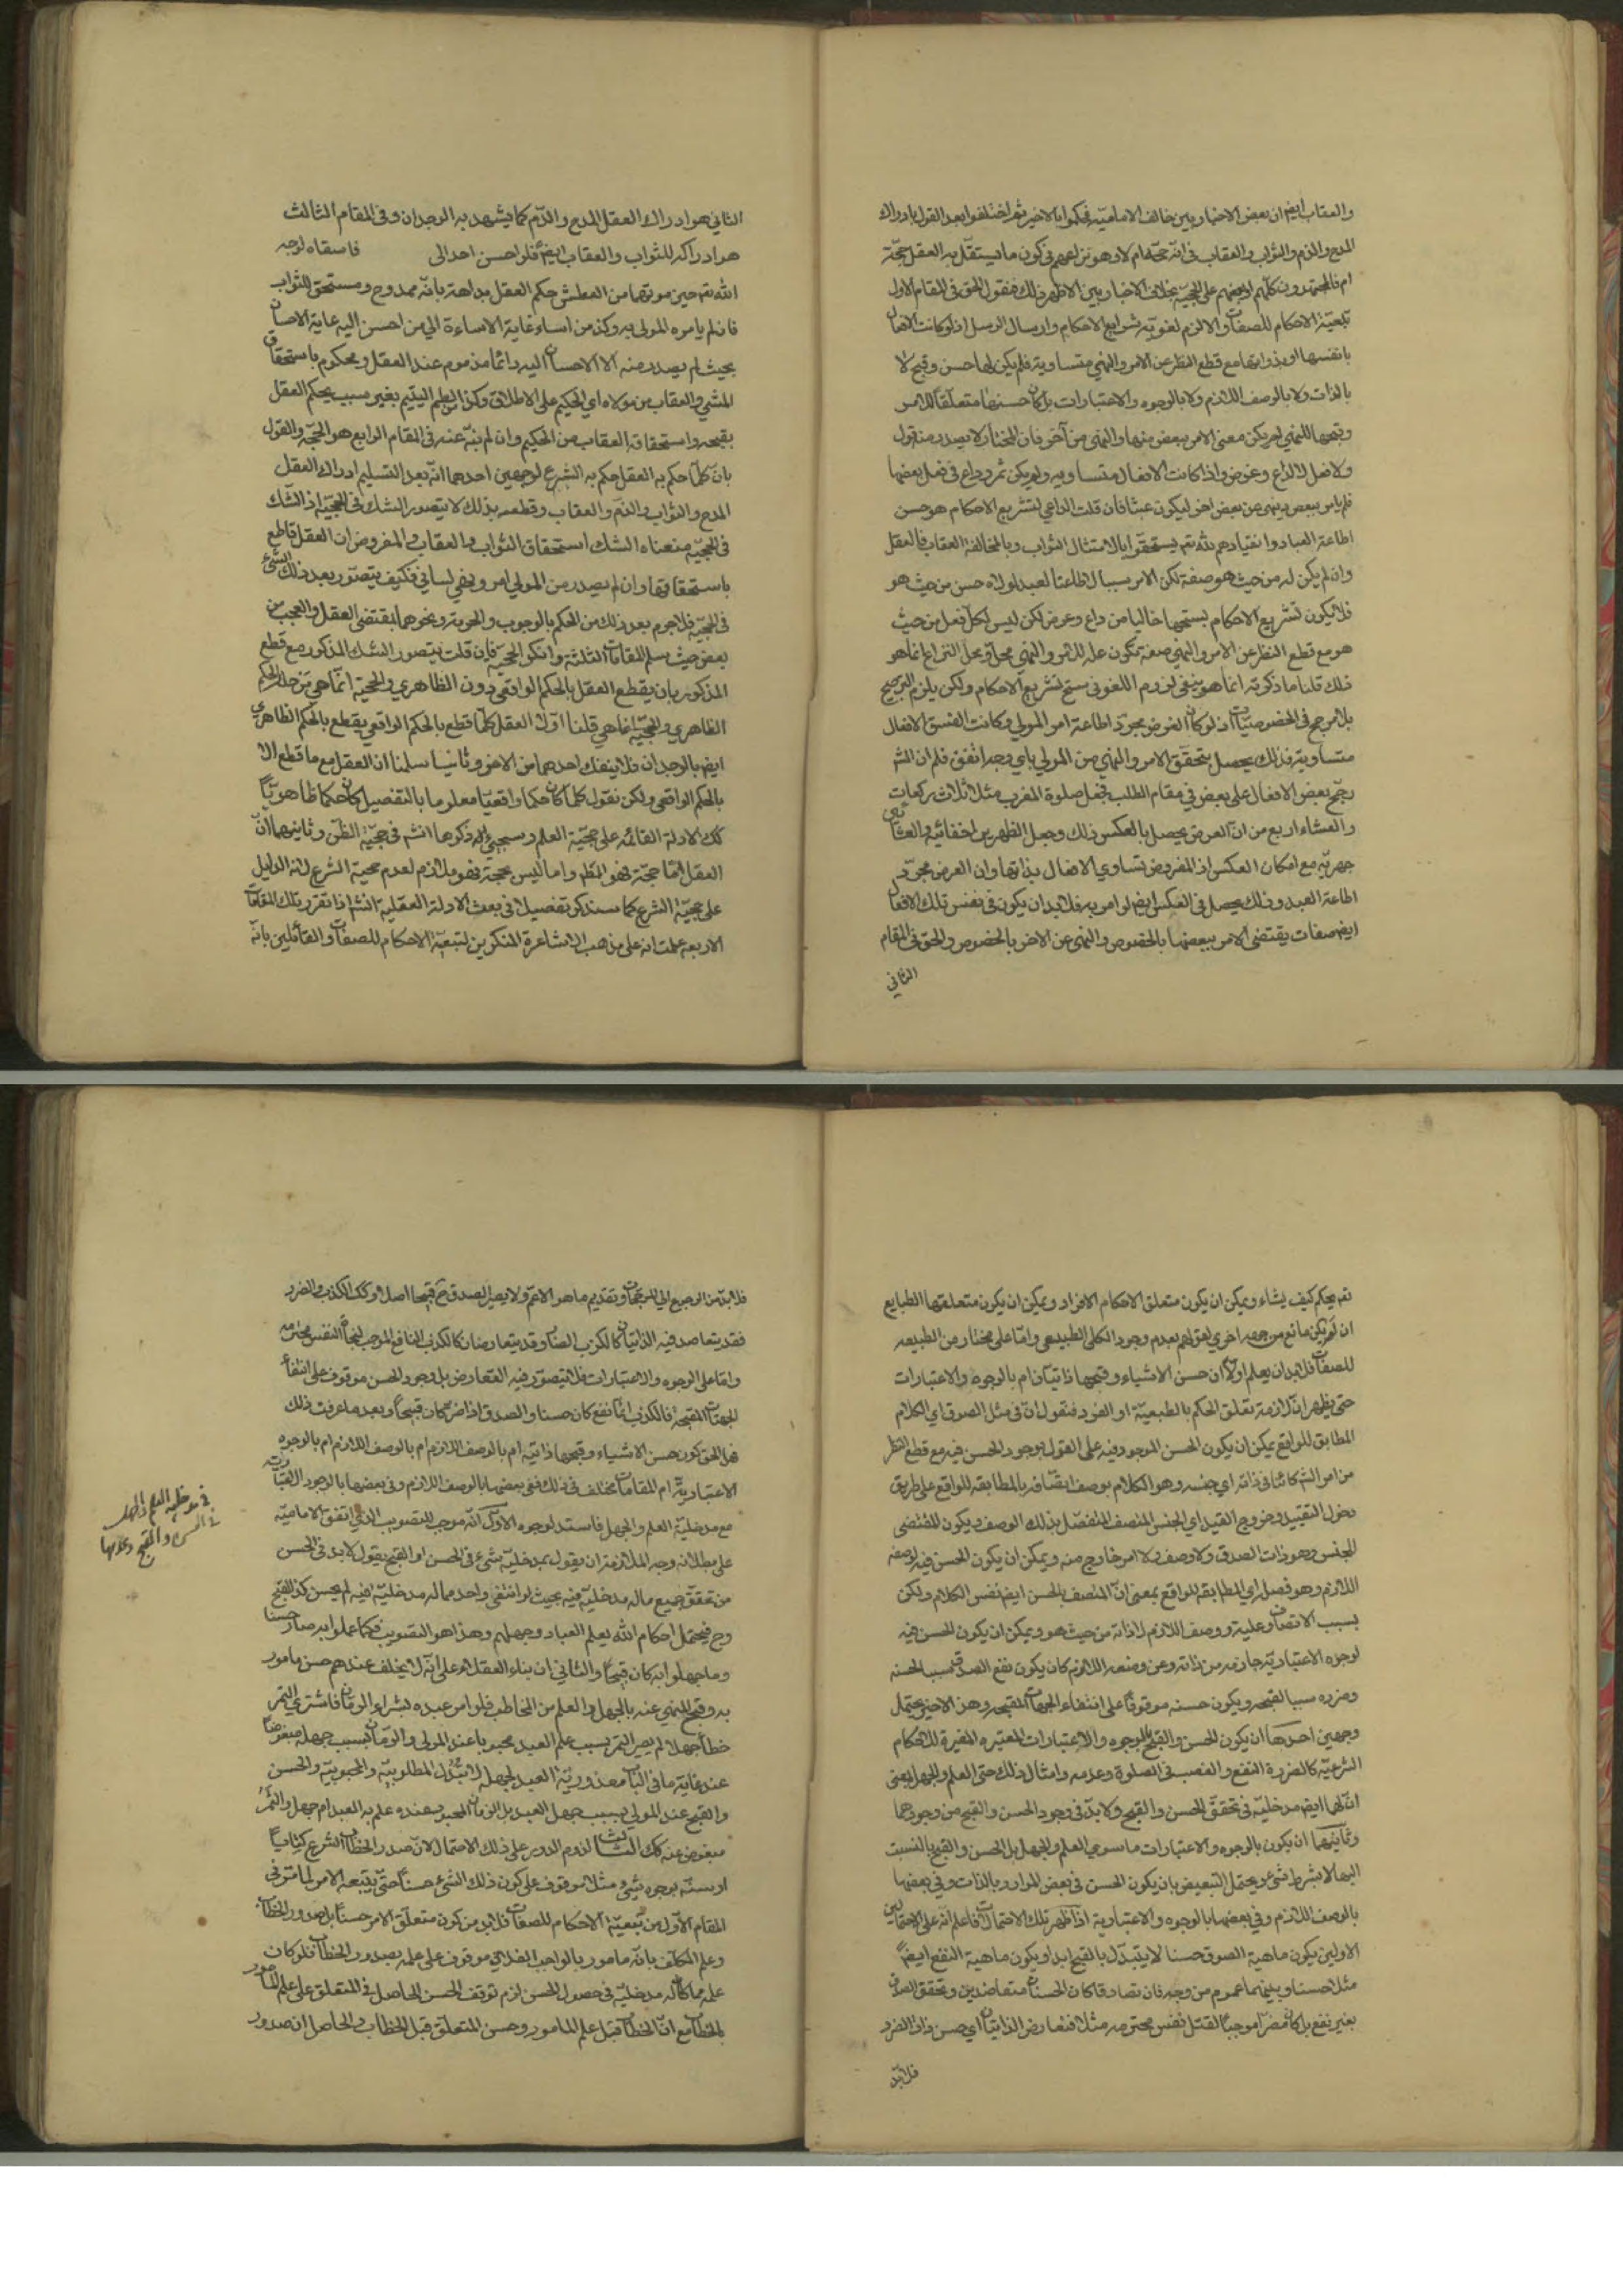 والعقاب ايض ان بعض الاخباريين خالف الامامية فحكموا بالاخير ثم اختلفوا بعد القول بادراك
المدح والذم والثواب والعقاب في انه حجة ام لا وهو نزاعهم في كون ما يستقل به العقل حجة
ام فالمجتهدون كلهم اجمعهم على الحجية بخلاف الاخباريين الاظهر ذلك فنقول الحق في المقام الاول
تبعية الاحكام للصفات والا لزم لغوية شرايع الاحكام وارسال الرسل اذ لو كانت الافعال
بانفسها او بذواتها مع قطع النظر عن الامر والنهي متساوية فلم يكن لها حسن وقبح لا
بالذات ولا بالوصف اللازم ولا بالوجوه والاعتبارات بل كان حسنها متعلقا للامر
وقبحها للنهي لم يكن معنى الامر ببعض منها والنهي من آخر فان المختار لا يصدر منه قول
ولا فعل الا لداع وغرض واذا كانت الافعال متساوية ولم يكن ثمر وداع في فعل بعضها
فلم يامر ببعض وينهى عن بعض اخر ليكون عبثا فان قلت الداعي لتشريع الاحكام هو حسن
اطاعة العباد وانقيادهم لله تم يستحقوا بالامتثال الثواب وبالمخالفة العقاب فالعقل
وان لم يكن له من حيث هو صفة لكن الامر سببا لاطاعة العبد لمولاه حسن من حيث هو
فلا يكون تشريع الاحكام بستحها خاليا من داع وغرض لكن ليس لكل فعل من حيث
هو مع قطع النظر عن الامر والنهي صفة تكون علة للامر والنهي محل النزاع انما هو
ذلك قلنا ما ذكرته انما هو ينفي لزوم اللغو في سنخ تشريع الاحكام ولكن يلزم الترجيح
بلا مرجح في الخصوصيات اذ لو كان الغرض مجرد اطاعة امر المولى وكانت الافعال
متساوية فذلك يحصل بتحقق الامر والنهي من المولى باي وجه اتفق فلم
رجح بعض الافعال على بعض في مقام الطلب فجعل صلوة المغرب مثلا ثلاث ركعات
والعشاء اربع من ان الغرض يحصل بالعكس ذلك وجعل الظهرين اخفائيه والعشائين
جهريه مع امكان العكس اذ المفروض تساوي الافعال بذاتها وان الغرض مجرد
اطاعة العبد وذلك يحصل في العكس ايض لو امر به فلا بد ان يكون في نفس تلك الافعال
ايض صفات يقتضي الامر ببعضها بالخصوص والنهي عن الاخر بالخصوص والحق في المقام
الثاني
الثاني هو ادراك العقل المدح والذم كما يشهد به الوجدان وفي المقام الثالث
هو ادراكه للثواب والعقاب ايض فلو احسن احد الى فاسقاه لوجه
الله تم حين موتها من العطش حكم العقل بداهة بانه ممدوح ومستحق للثواب
فان لم يامره المولى به وكذا من اساء غاية الاساءة الى من احسن اليه غاية الاحسان
بحيث لم يصدر منه الا الاحسان اليه دائما مذموم عند العقل ومحكوم باستحقاق
والعقاب من مولاه اي الحكيم على الاطلاق وكذا يظلم اليتيم بغير سبب يحكم العقل
بقبحه واستحقاقه العقاب من الحكيم وان لم ينه عنه في المقام الرابع هو الحجية والقول
بان كلما حكم به العقل حكم به الشرع لوجهين احدهما انه بعد التسليم ادراك العقل
المدح والثواب والذم والعقاب وقطعه بذلك لا يتصور الشك في الحجية اذ الشك
في الحجية معناه الشك استحقاق الثواب والعقاب والمفروض ان العقل قاطع
باستحقاقها وان لم يصدر من المولى امر ونهي لساني فكيف يتصور بعد ذلك الشك
في الحجية فلا جرم بعد ذلك من الحكم بالوجوب والحرمة ونحوهما بمقتضى العقل والعجب من
بعض حيث سلم المقامات الثلثة وانكر الحجية فان قلت يتصور الشك المذكور مع قطع
المذكور بان يقطع العقل بالحكم الواقعي دون الظاهري والحجية انما هي تترتب على الحكم
الظاهري والحجية انما هي قلنا اولا العقل كلما قطع بالحكم الواقعي يقطع بالحكم الظاهري
ايض بالوجدان فلا ينفك احدهما من الاخر وثانيا سلمنا ان العقل مع ما قطع الا
بالحكم الواقعي ولكن نقول كلما كان حكما واقعيا معلوما بالتفصيل كان حكما ظاهريا
لك الادلة القائمة على حجية العلم وسيجيئ ذكرها انشم في حجية الظن وثانيهما ان
العقل اما حجة فهو المظ واما ليس بحجة فهو ملازم لعدم حجية الشرع لانه الدليل
على حجية الشرع كما سنذكر تفصيلا في بعث الادلة العقلية انشم اذا تقرر تلك المقامات
الاربعة علمت انه على مذهب الاشاعرة المنكرين لتبعية الاحكام للصفات والقائلين بانه
تم يحكم كيف يشاء ويمكن ان يكون متعلق الاحكام الافراد ويمكن ان يكون متعلقها الطبايع
ان لم يكن مانع من جهة اخرى لقولهم بعدم وجود الكلى الطبيعي واما على مختار من الطبيعة
للصفات فلابد ان يعلم اولا ان حسن الاشياء وقبحها ذاتيان ام بالوجوه والاعتبارات
حتى يظهر ان لازمة تعلق الحكم بالطبيعة او الفرد فنقول ان في مثل الصدق اي الكلام
المطابق للواقع يمكن ان يكون الحسن الموجود فيه على القول بوجود الحسن فيه مع قطع النظر
من امر الش كائنا في ذاته اي جنسه وهو الكلام بوصف اتصافه بالمطابقة للواقع على طريق
دخول التقييد وخروج القيد اي الجنس المتصف المنفصل بذلك الوصف ويكون المقتضى
للجنس وهو ذات الصدق ولا وصف ولا امر خارج منه ويمكن ان يكون الحسن فيه لوصفه
اللازم وهو فصل اي المطابقة للواقع بمعنى ان المتصف بالحسن ايض نفس الكلام ولكن
بسبب الاتصاف وعلية ووصف اللازم لا ذاته من حيث هو ويمكن ان يكون الحسن فيه
لوجوه الاعتبارية خارجة من ذاته وعن وصفه اللازم كان يكون نفع الصدق سبب الحسنه
وضرره سببا لقبحه ويكون حسنه موقوفا على انتفاء الجهات المقبحة وهذا الاخير يحتمل
وجهين احدهما ان يكون الحسن والقبح بالوجوه والاعتبارات المعتبره المغيرة للاحكام
الشرعية كالضرر والنفع والغصب في الصلوة وعدمه وامثال ذلك حتى العلم والجهل يعنى
ان لها ايض مدخلية في تحقق الحسن والقبح ولا بد في وجود الحسن والقبح من وجودهما
وثانيهما ان يكون بالوجوه والاعتبارات ما سوى العلم والجهل بل الحسن والقبح بالنسبت
اليها لا بشرط شيء ويحتمل التبعيض بان يكون الحسن في بعض الموارد بالذات وفي بعضها
بالوصف اللازم وفي بعضها بالوجوه والاعتبارية اذا ظهر تلك الاحتمالات فاعلم انه على الاحتمالين
الاولين يكون ماهية الصدق حسنا لا يتبدل بالقبح ابدا ويكون ماهية النفع ايضً
مثلا حسنا وبينهما عموم من وجه فان تصادقا كان الحسنان متعاضدين وتحقق الصدق
بغير نفع بل كان مضرا موجبا لقتل نفس محترمه مثلا فتعارض الذاتيان اي حسن ذات الضرر
فلابد
فلابد من الرجوع الى المرجحات وتقديم ما هو الاهم ولا يصير الصدق ح قبيحا اصلا وكك الكذب والضرر
فقد يتعاضد فيه الذاتيان كالكذب الضار وقد يتعارضان كالكذب النافع الموجب لنجاة النفس محترمه
واما على الوجوه والاعتبارات فلا يتصور فيه التعارض بل وجود الحسن موقوف على انتفاء
الجهات المقبحة فالكذب اذا نفع كان حسنا والصدق اذا ضر كان قبيحا وبعد ما عرفت ذلك
فهل الحق كون حسن الاشياء وقبحها ذاتية ام بالوصف اللازم ام بالوجوه
الاعتبارية ام المقامات مختلف في ذلك ففي بعضها بالوصف اللازم وفي بعضها بالوجوه الاعتبارية
مع مدخلية العلم والجهل فاستد لوجوه الاول انه موجب للتصويب الذي اتفق الامامية
على بطلانه وجه الملازمة ان يقول بمدخلية شيء في الحسن او القبح يقول لا بد في الحسن
من تحقق جميع ماله مدخلية فيه بحيث لو انتفى واحد مما له مدخلية فيه لم يحسن كذا القبح
وح فيحتمل احكام الله بعلم العباد وجهلهم وهذا هو التصويب فكما علموا به صار حسنا
وما جهلوا به كان قبيحا والثاني ان بناء العقلاء على انه لا يختلف عندهم حسن مامور
به وقبح المنهي عنه بالجهل والعلم من المخاطب فلو امر عبده بشراء الرمان فاشترى التمر
خطأ جهلا لم يصر التمر بسبب علم العبد محبوبا عند المولى والرمان بسبب جهله مبغوضا
عند غاية ما في الباب معذورية العبد لجهله لا تبدل المطلوبية والمحبوبية والحسن
والقبح عند المولى بسبب جهل العبد بل الرمان المحبوب عنده علم به العبد ام جهل والتمر
مبغوض عنه كك الثالث لزوم الدور على ذلك الاحتمال لان صدر الخطاب الشرع كتابيا
او سنة بوجوه شيء مثلا موقوف على كون ذلك الشيء حسنا حتى يتبعه الامر لما مر في
المقام الاول من تبعية الاحكام للصفات فلابد من كون متعلق الامر حسنا بل صدور الخطاب
وعلم المكلف بانه مامور بالواجب الفلاني موقوف على علمه بصدور الخطاب فلو كان
علمه مما كان له مدخلية في حصول الحسن لزم توقف الحسن الحاصل في المتعلق على علم المامور
بالخطاب مع ان الخطاب قبل علم المامور وحسن المتعلق قبل الخطاب والحاصل ان صدور
في مدخلية العلم والجهل
في الحسن والقبح وعدمها